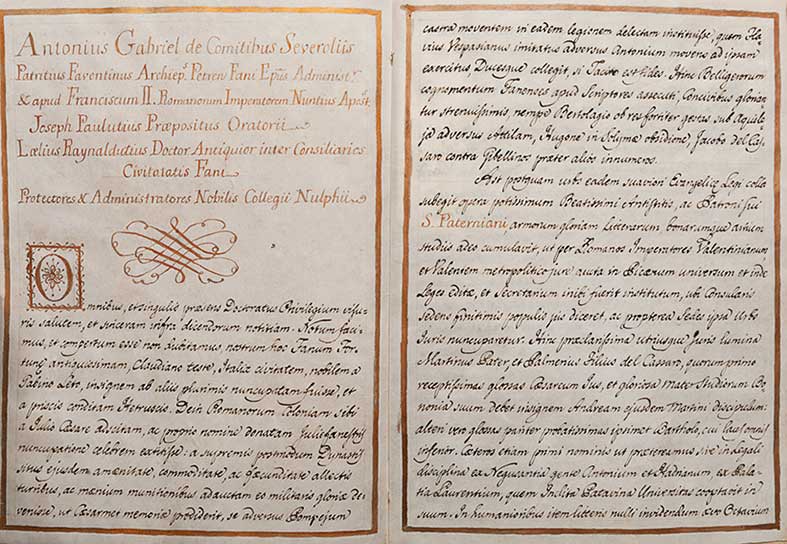 Antonius Gabriel de Comitibus Severoliis
Patritius Faventinus Archiep.s Petren Fani Ep̃us Administ.r
& apud Franciscum II. Romanorum Imperatorem Nuntius Apost.
Joseph Paulutius Præpositus Oratorii
Lælius Raynaldutius Doctor Antiquior inter Consiliarios
Civitatatis Fani
Protectores & Administratores Nobilis Collegii Nulphii
Omnibus, et singulis præsens Doctoratus Privilegium visu-
ris salutem, et sinceram infra dicendorum notitiam. Notum faci-
mus, et compertum esse non dubitamus, nostrum hoc Fanum For-
tunę antiquissimam, Claudiano teste, Italiæ civitatem, nobilem a
insignem ab aliis plurimis nuncupatam fuisse, et
a priscis conditam Hetruscis. Dein Romanorum Coloniam sibi
a Julio Cæsare adscitam, ac proprio nomine donatam Juliæ fanestris
nuncupatione celebrem extitisse: a supremis postmodum Dynastis
situs ejusdem amænitate, commoditate, ac fæcunditate allectis
turribus, ac mænium munitionibus adauctam eo militaris gloriæ de-
venisse, ut Cæsar met memoriæ prodiderit, se adversus Pompejum
castra moventem in eadem legionem delectam instituisse, quem Fla-
vius Vespasianus imitatus adversus Antonium movens ad ipsam
exercitus, Ducesque collegit, si Tacito est fides. Hinc Belligerorum
cognomentum Fanenses apud Scriptores assecuti, Concivibus glorian-
tur strenuissimis, nempe Bertolagio ob res fortiter gestas sub Aquile-
ja adversus Attilam, Hugone in Solymæ obsidione, Jacobo del Cas-
saro contra Gibellinos præter alios innumeros.
Ast postquam urbs eadem suaviori Evangelicę Legi colla
subegit opera potissimum Beatissimi Antistitis, ac Patroni sui
S. Paterniani, armorum gloriam litterarum bonarumque artium
studiis adeo cumulavit, ut per Romanos Imperatores Valentinianum,
et Valentem metropolitico jure aucta in Picænum universum et inde
Leges editæ, et Secretarium inibi fuerit institutum, ubi Consularis
sedens finitimis populis jus diceret, ac propterea Sedes ipsa Urbs
Juris nuncuparetur. Hinc præclarissima utriusque Juris lumina
Martinus Pater, et Palmerius Filius del Cassaro, quorum primo
receptissimas glossas Cæsareum Jus, et gloriosa Mater Studiorum Bo-
nonia suum debet insignem Andream ejusdem Martini discipulum:
alteri vero glossas pariter probatissimas ipsimet Bartholo, cui laus omnis
infertur. Cæteros etiam primi nominis ut prætereamus sive in legali
disciplina ex Negusantia gente Antonium et Hadrianum, ex Pala-
tia Laurentium, quem Inclita Patavina Universitas cooptavit in
suum. In humanioribus item litteris nulli invidendum ævo Octavium